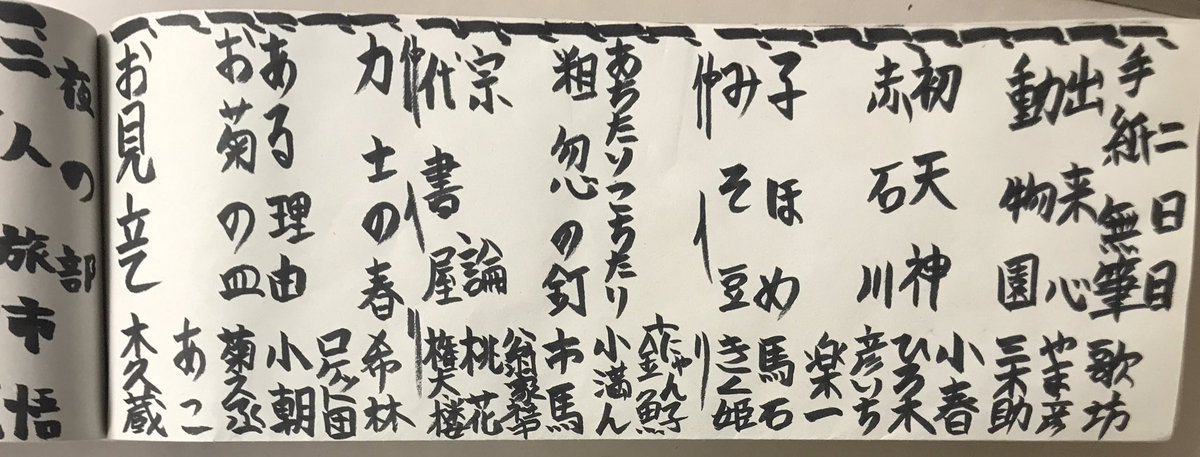 二日目
手紙無筆 歌坊
出来心 やま彦
動物園 三木助
小春
初天神 ひろ木
赤石川 彦いち
楽一
子ほめ 馬石
みそ豆 きく姫
仲入り
にゃん子
金魚
あちたりこちたり 小満ん
粗忽の釘 市馬
翁家
宗論 桃花
代書屋 権太楼
仲入り
力士の春 希林
ロケット団
ある理由 小朝
お菊の皿 菊之丞
あこ
一お見立て 木久蔵
夜の部
三人旅 市悟